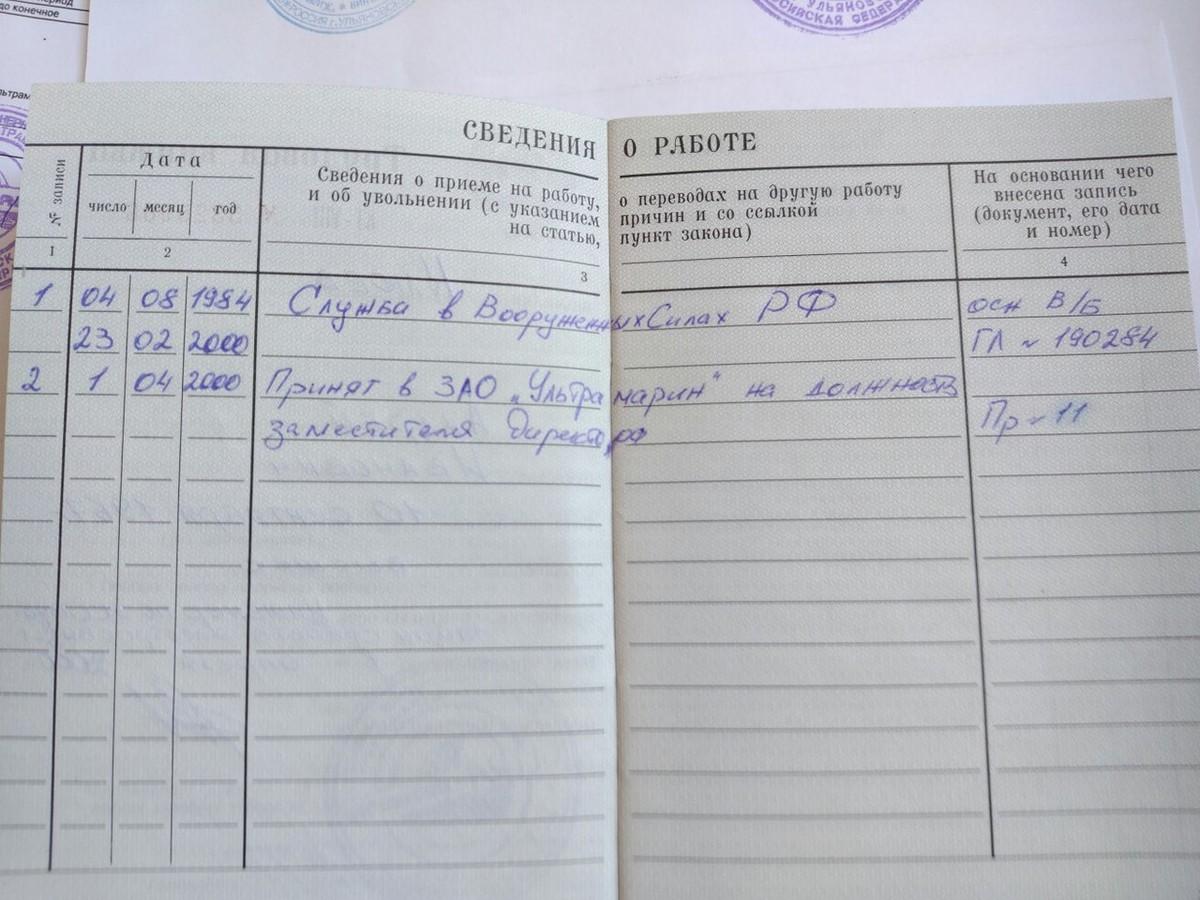 период
до конечное
РОССИЯ г.УЛЬЯНОВСК
УЛЬЯНОВ
СИЙСКАЯ ФЕДЕР
СВЕДЕНИЯ О РАБОТЕ
№ записи
Дата
число месяц год
Сведения о приеме на работу, о переводах на другую работу
и об увольнении (с указанием причин и со ссылкой
на статью, пункт закона)
На основании чего
внесена запись
(документ, его дата
и номер)
1 2 3 4
1 04 08 1984 Служба в Вооруженных Силах РФ осн В/Б
23 02 2000 ГЛ № 190284
2 1 04 2000 Принят в ЗАО „Ультрамарин" на должность
заместителя директора Пр № 11